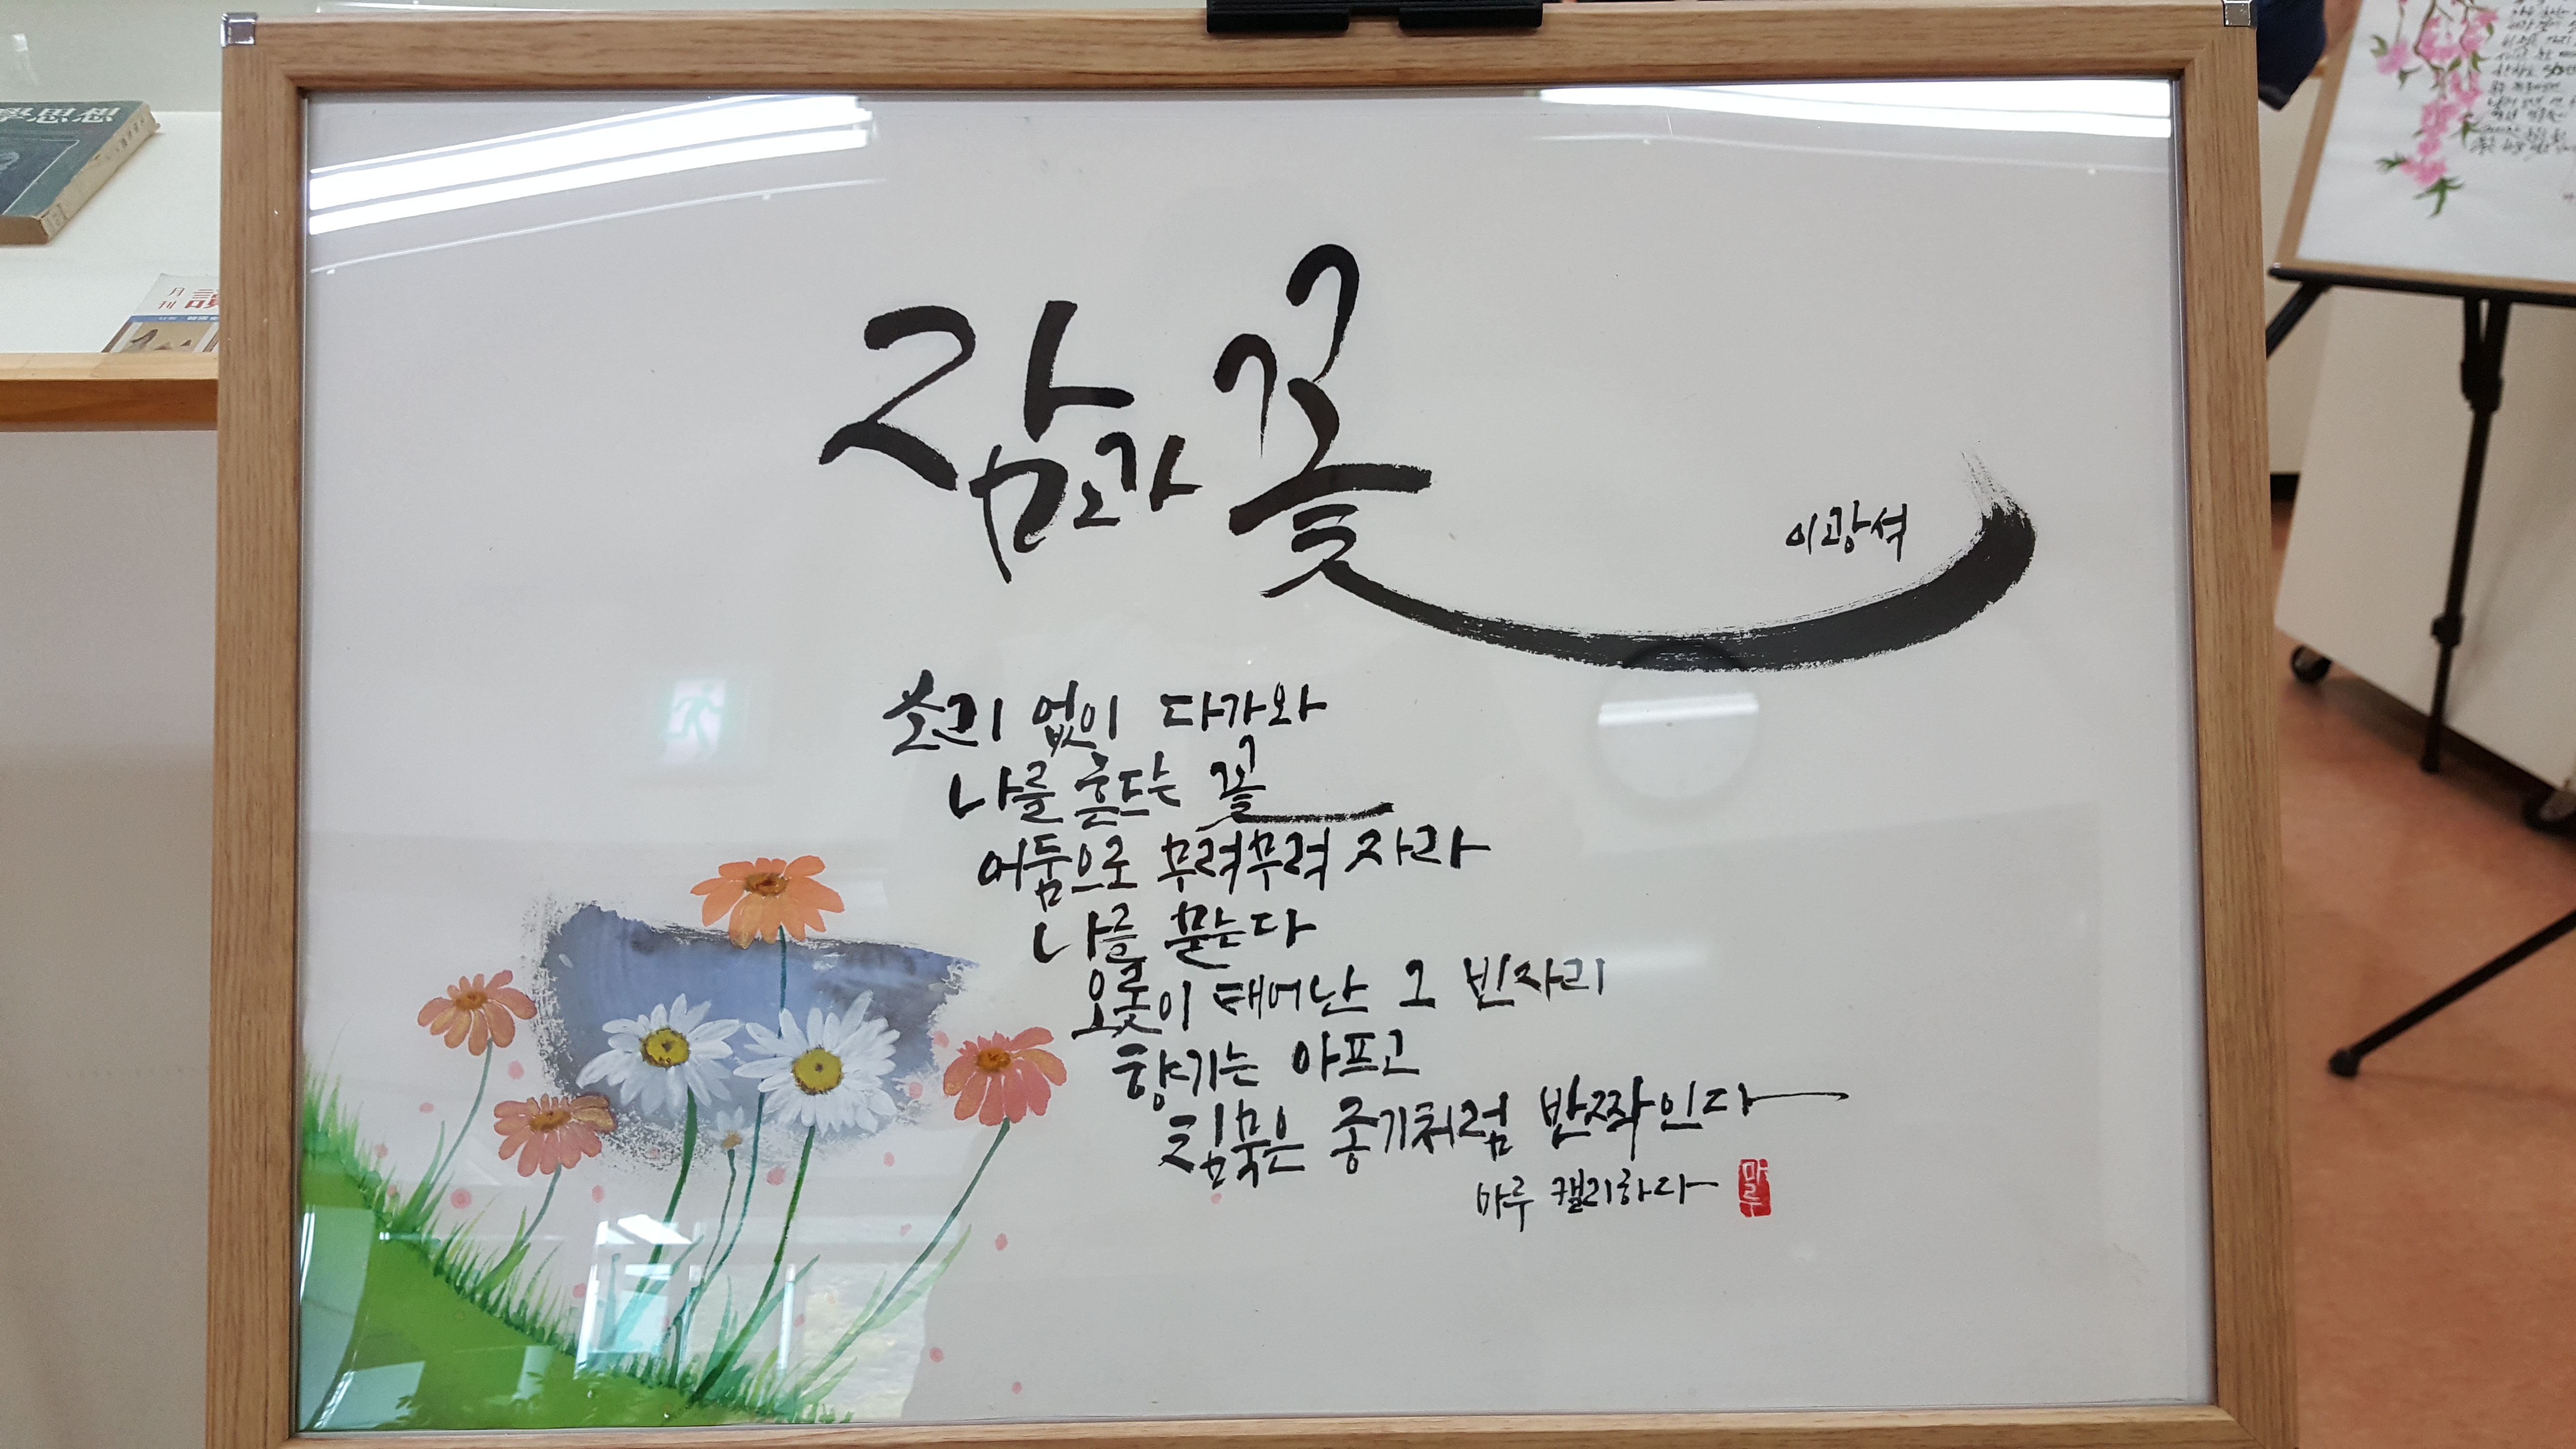 學思想
月刊
잠과 꽃
이광석
소리 없이 다가와
나를 흔드는 꽃
어둠으로 무럭무럭 자라
나를 묻는다
오롯이 태어난 그 빈자리
향기는 아프고
침묵은 종기처럼 반짝인다
마루 캘리하다
마루